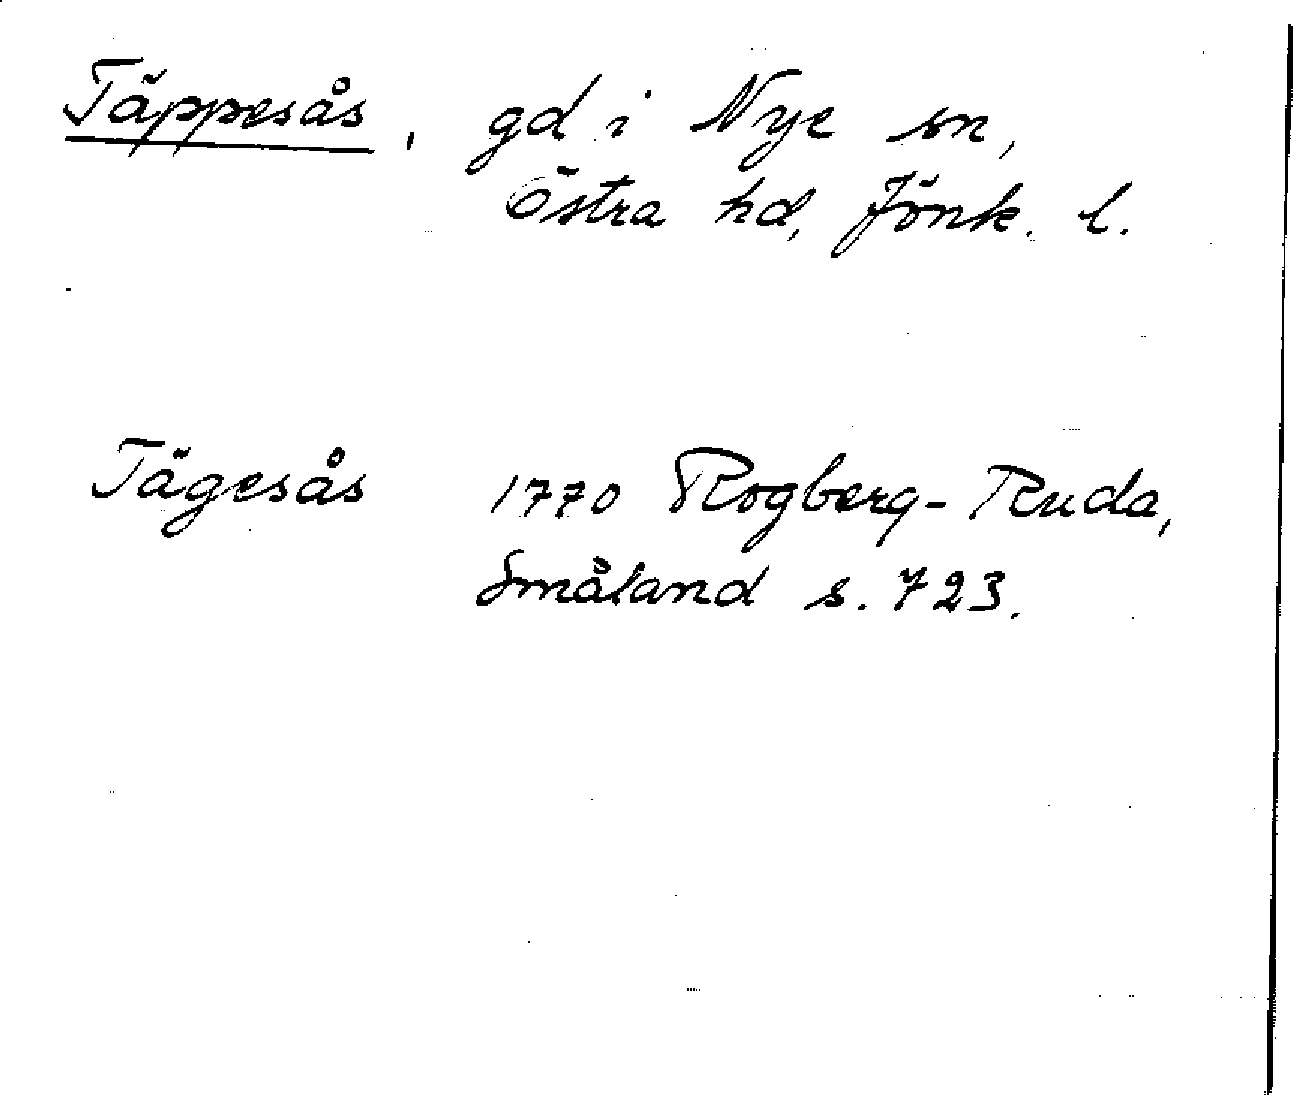 Täppesås, gd i Nye sn,
Östra hd, Jönk. l.
Tägesås 1770 Rogberg-Ruda,
Småland s. 723.